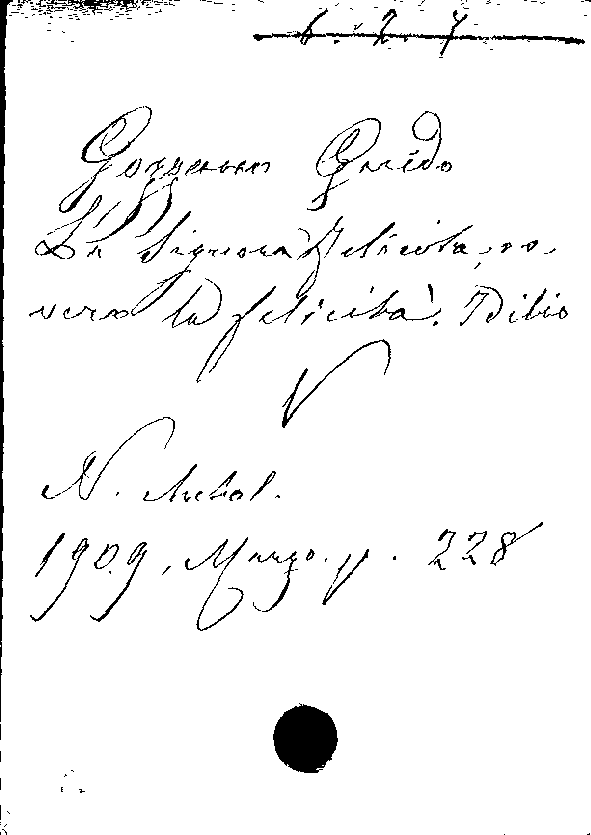 6. 2. 7
Gozzano Guido
La Signora Felicita, ov-
vero la felicità. Idilio
N. Antol.
1909, Marzo. p. 228